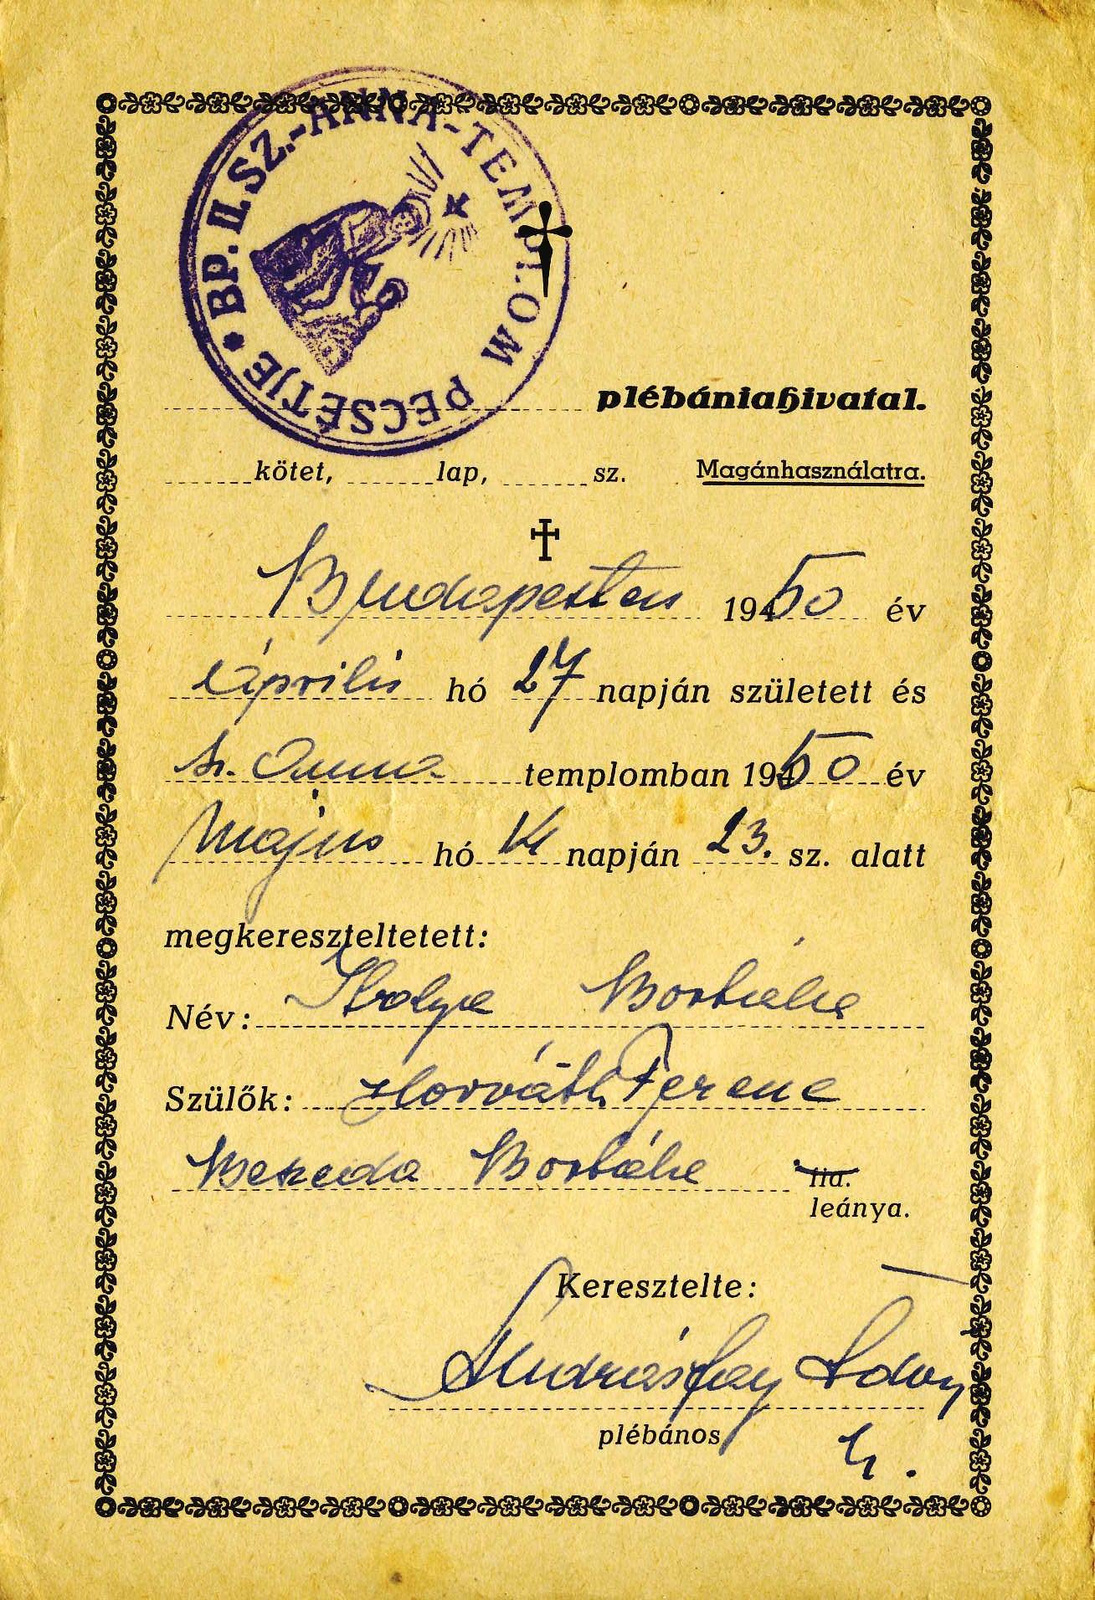 * BP. II. SZ.-ANNA-TEMPLOM PECSÉTJE
plébániahivatal.
kötet, lap, sz. Magánhasználatra.
Budapesten 1950 év
április hó 27 napján született és
Sz. Anna templomban 1950 év
május hó 14 napján 23. sz. alatt
megkereszteltetett:
Név: Ibolya Borbála
Szülők: Horváth Ferenc
Borbála fia.
leánya.
Keresztelte:
Andrásfay
plébános